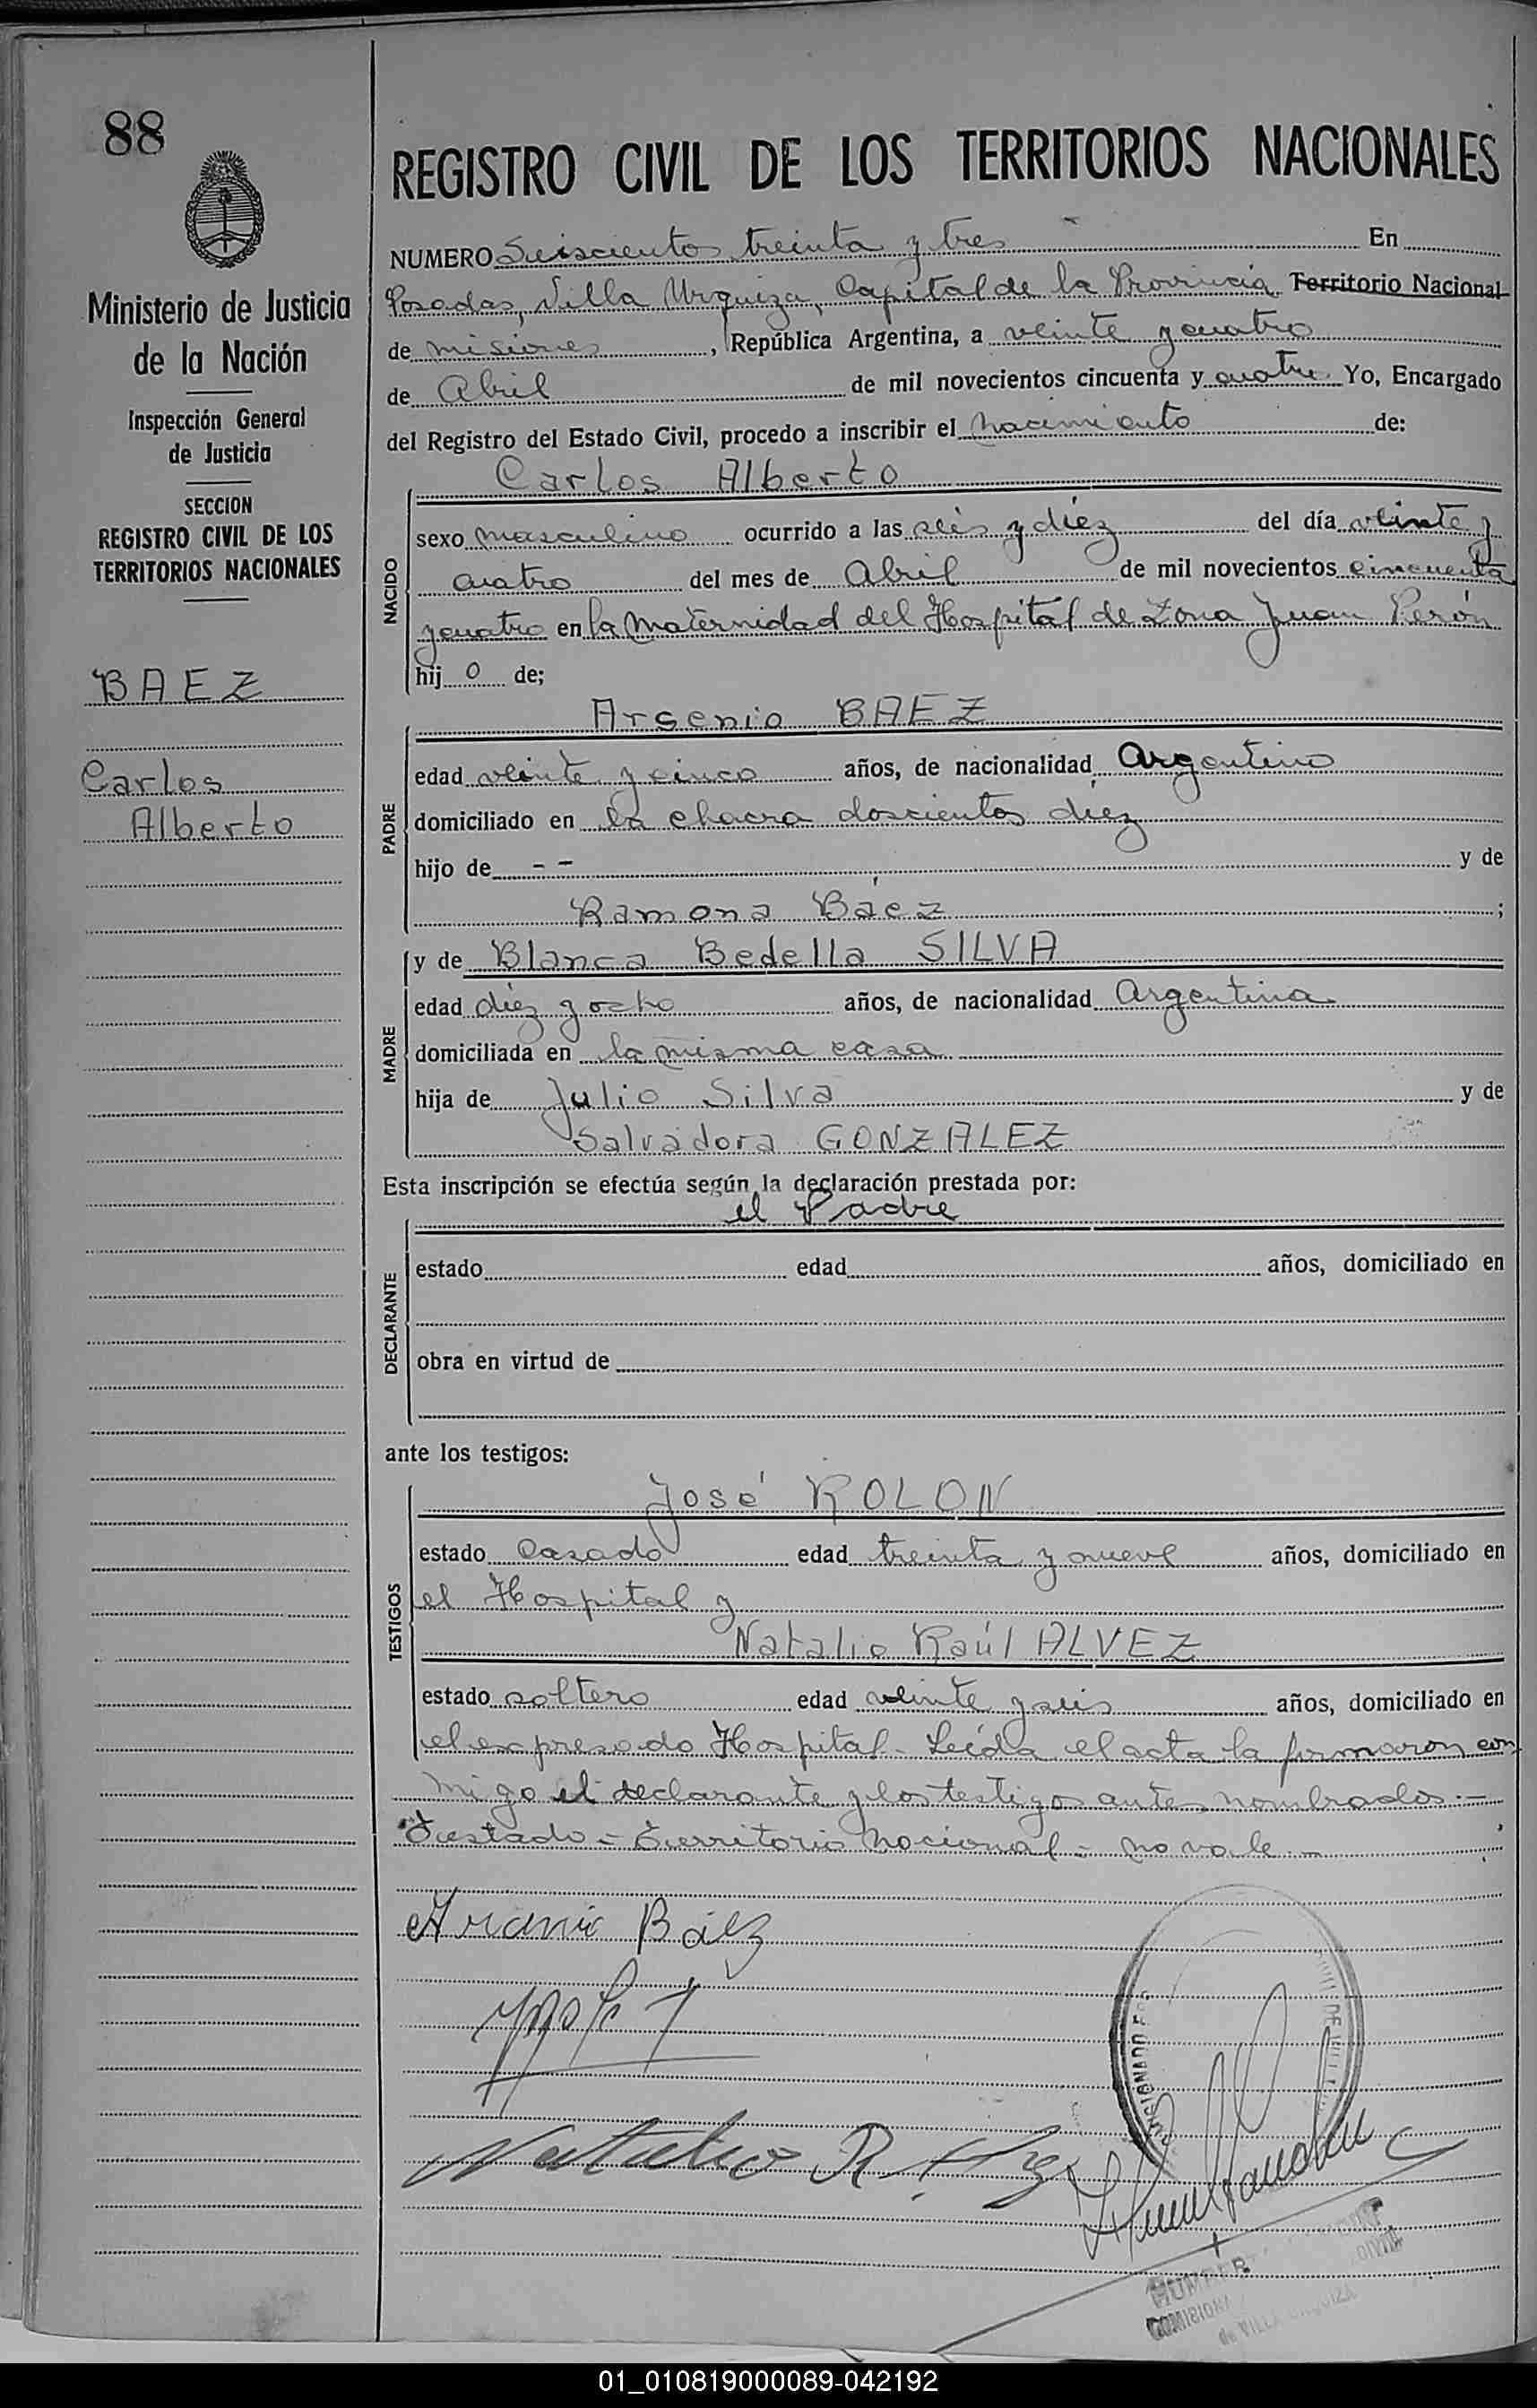 88
Ministerio de Justicia
de la Nación
Inspección General
de Justicia
SECCION
REGISTRO CIVIL DE LOS
TERRITORIOS NACIONALES
BAEZ
Carlos
Alberto
REGISTRO CIVIL DE LOS TERRITORIOS NACIONALES
NUMERO Seiscientos treinta y tres En
Posadas, Villa Urquiza, Capital de la Provincia Territorio Nacional
de misiones, República Argentina, a veinte y cuatro
de Abril de mil novecientos cincuenta y cuatro Yo, Encargado
del Registro del Estado Civil, procedo a inscribir el nacimiento de:
Carlos Alberto
NACIDO
sexo masculino ocurrido a las seis y diez del día veinte y
cuatro del mes de Abril de mil novecientos cincuenta
y cuatro en la Maternidad del Hospital de Zona Juan Perón
hij o de;
Arsenio BAEZ
PADRE
edad veinte y cinco años, de nacionalidad Argentino
domiciliado en la chacra doscientos diez
hijo de - - y de
Ramona Báez ;
y de Blanca Bedella SILVA
MADRE
edad diez y ocho años, de nacionalidad Argentina
domiciliada en la misma casa
hija de Julio Silva y de
Salvadora GONZALEZ
Esta inscripción se efectúa según la declaración prestada por:
el Padre
DECLARANTE
estado edad años, domiciliado en
obra en virtud de
ante los testigos:
José ROLON
TESTIGOS
estado Casado edad treinta y nueve años, domiciliado en
el Hospital y
Natalio Raúl ALVEZ
estado soltero edad veinte y seis años, domiciliado en
el expresado Hospital - Leída el acta la firmaron con
migo el declarante y los testigos antes nombrados.-
Testado - Territorio Nacional - no vale.-
Báez
Natalio R.
de VILLA
01_010819000089-042192